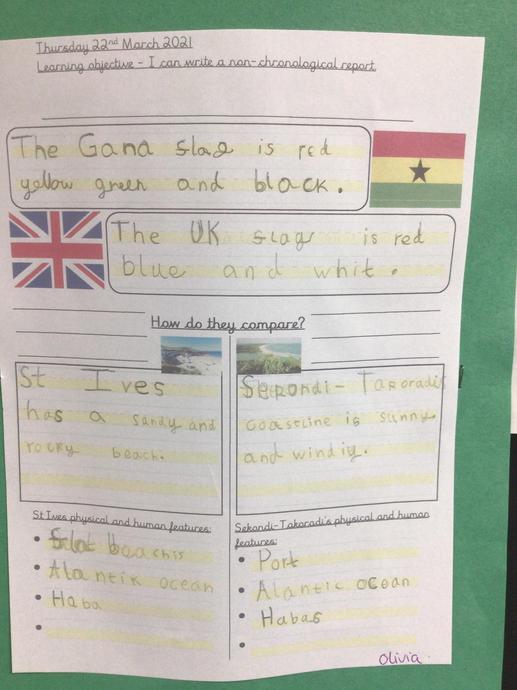 Thursday 22nd March 2021
Learning objective - I can write a non-chronological report.
The Gana flag is red
yellow green and black.
The UK flag is red
blue and whit.
How do they compare?
St Ives
has a sandy and
rocky beach.
Sekondi - Takoradi's
coastline is sunny
and windiy.
St Ives physical and human features:
• beachis
• Atlantik ocean
• Haba
•
Sekondi-Takoradi's physical and human
features:
• Port
• Alantic ocean
• Habas
•
Olivia